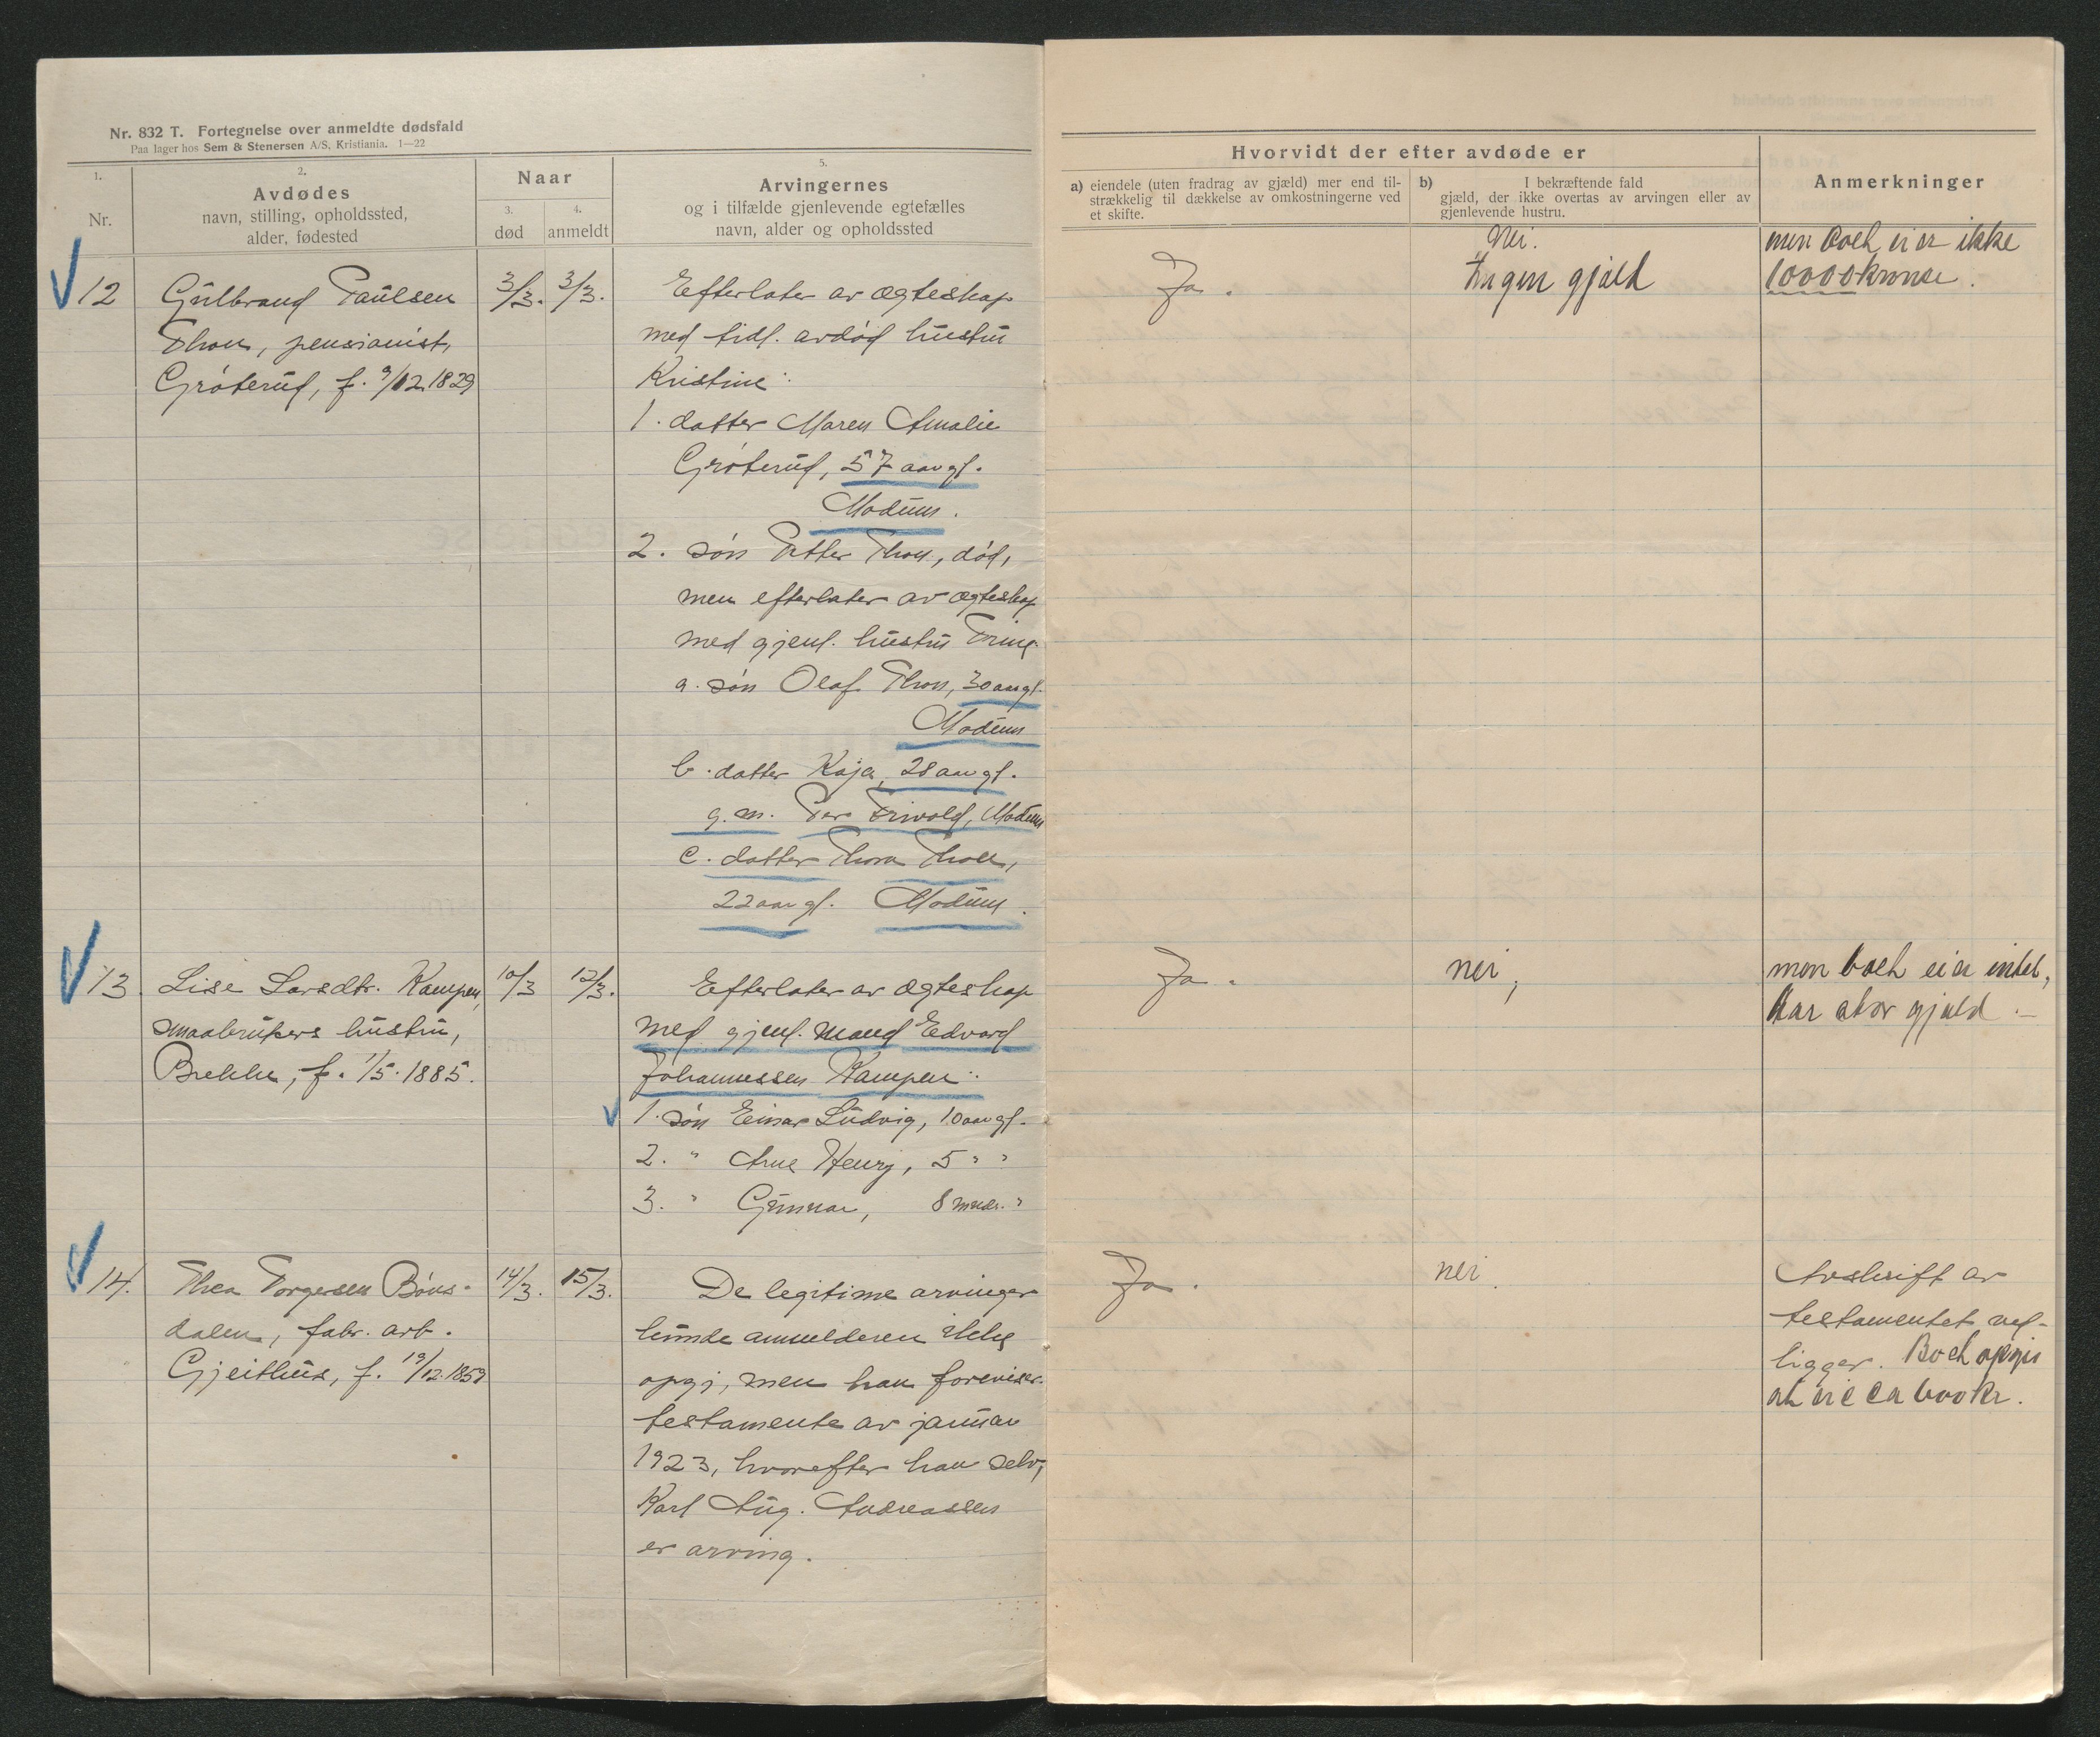 Nr. 832 T. Fortegnelse over anmeldte dødsfald
Paa lager hos Sem & Stenersen A/S, Kristiania. 1—22
1.
Nr.
2.
Avdødes
navn, stilling, opholdssted,
alder, fødested
Naar
3.
død
4.
anmeldt
5.
Arvingernes
og i tilfælde gjenlevende egtefælles
navn, alder og opholdssted
Hvorvidt der efter avdøde er
a) eiendele (uten fradrag av gjæld) mer end til-
strækkelig til dækkelse av omkostningerne ved
et skifte.
b) I bekræftende fald
gjæld, der ikke overtas av arvingen eller av
gjenlevende hustru.
Anmerkninger
12
Gulbrand Paulsen
Thon, pensionist,
Gróterud, f. 9/12 1829
3/3.
3/3.
Efterlater av ægteskap
med tidl. avdød hustru
Kristine:
1. datter Maren Amalie
Gróterud, 57 aar gl.
Modum.
2. søn Petter Thon, død,
men efterlater av ægteskap
med gjenl. hustru Trine:
a. søn Olaf Thon, 30 aar gl.
Modum
b. datter Kaja, 28 aar gl.
g. m. Per Trivold, Modum
c. datter Thora Thon,
22 aar gl. Modum.
Ja.
Nei.
Ingen gjæld
men boet eier ikke
10000 kroner.
13.
Lise Larsdtr. Kampen,
smaabrukers hustru,
Brekke, f. 1/5. 1885.
10/3
12/3.
Efterlater av ægteskap
med gjenl. mand Edvard
Johannessen Kampen:
1. søn Einar Ludvig, 10 aar gl.
2. " Arne Henry, 5 " "
3. " Gunnar, 8 mndr. "
Ja.
nei,
men boet eier intet,
har stor gjæld.—
14.
Thea Torgersen Bøns-
dalen, fabr. arb.
Gjeithus, f. 19/12 1859
14/3.
15/3.
De legitime arvinger
kunde anmelderen ikke
opgi, men han foreviser
testamente av januar
1923, hvorefter han selv,
Karl Aug. Andreassen
er arving.
Ja.
nei.
Avskrift av
testamentet ved-
ligger. Boet opgis
at eie ca 600 kr.